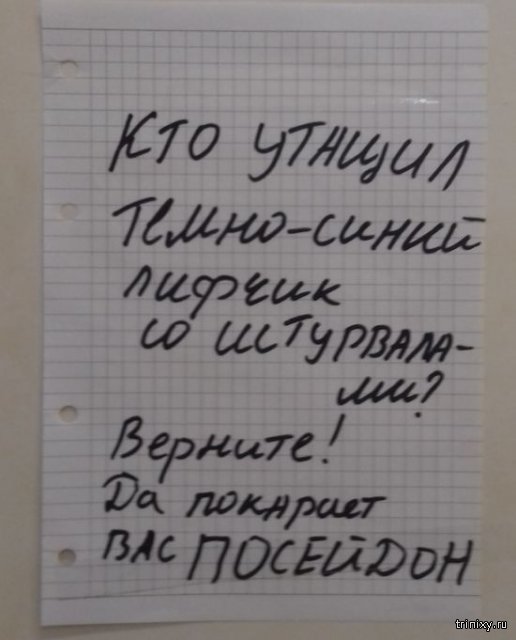 КТО УТАЩИЛ
ТЕМНО-СИНИЙ
ЛИФЧИК
СО ШТУРВАЛА-
МИ?
Верните!
Да покарает
ВАС ПОСЕЙДОН
trinixy.ru